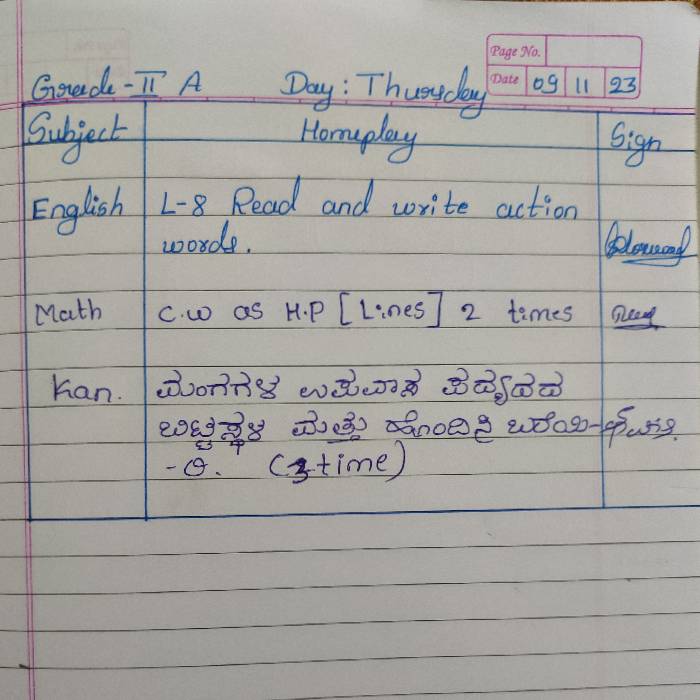 Page No.
Grade - II A Day : Thursday Date 09 11 23
Subject Homeplay Sign
English L-8 Read and write action
words.
Math C.W as H.P [Lines] 2 times
Kan. ಮಂಗಗಳ ಉಪವಾಸ ಪದ್ಯದದ
ಬಿಟ್ಟಸ್ಥಳ ಮತ್ತು ಹೊಂದಿಸಿ ಬರೆಯಿ-
-ರಿ. (3 time)